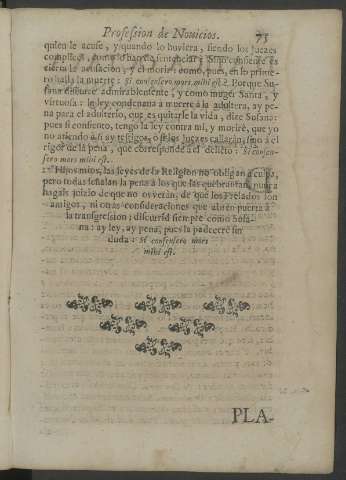 Profession de Novicios. 75
quien le acuse, y quando lo huviera, siendo los Juezes
complices, como lo han de sentenciar? Si no consiente es
cierta la acusacion, y el morir: como, pues, en lo prime-
ro halla la muerte: Si consensero mors mihi est? Porque Su-
sana discurre admirablemente, y como muger Santa, y
virtuosa: la ley condena à muerte à la adultera, ay pe-
na para el adulterio, que es quitarle la vida, dize Susana:
pues si consiento, tengo la ley contra mi, y moriré, que yo
no atiendo à si ay testigos, o si los Juezes callaràn, sino à el
rigor de la pena, que corresponde à el delicto: Si consen-
sero mors mihi est.
Hijos mios, las leyes de la Religion no obligan à culpa,
pero todas señalan la pena à los que las quebrantan, nunca
hagais juizio de que no os veràn, de que los Prelados son
amigos, ni otras consideraciones que abren puerta à
la transgression; discurrid siempre como Susa-
na: ay ley, ay pena, pues la padeceré sin
duda: Si consensero mors
mihi est.
PLA-